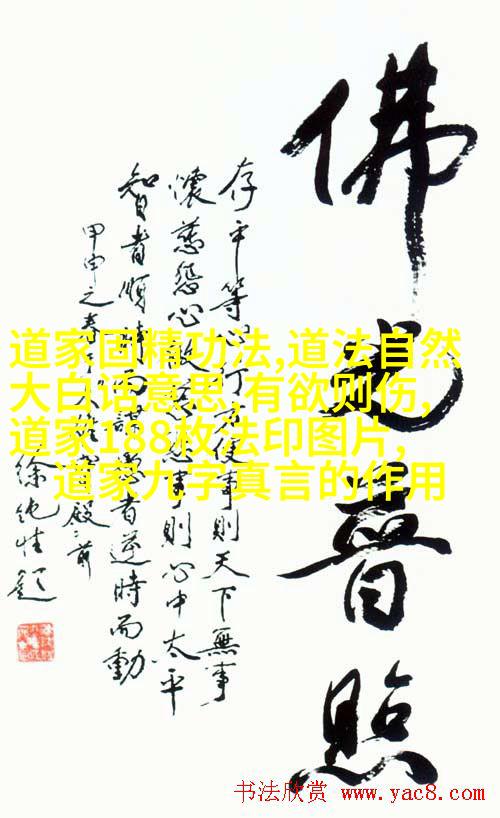 佛光普照
存平等心行方便事則天下無事
懷慈悲心做慈悲事則心中太平
智者順時而謀愚者逆時而動
甲申之春
殿前
徐純性題
道家固精功法,道法自然
大白话意思,有欲则伤,
道家188枚法印图片,
道家九字真言的作用
书法欣赏 www.yac8.com